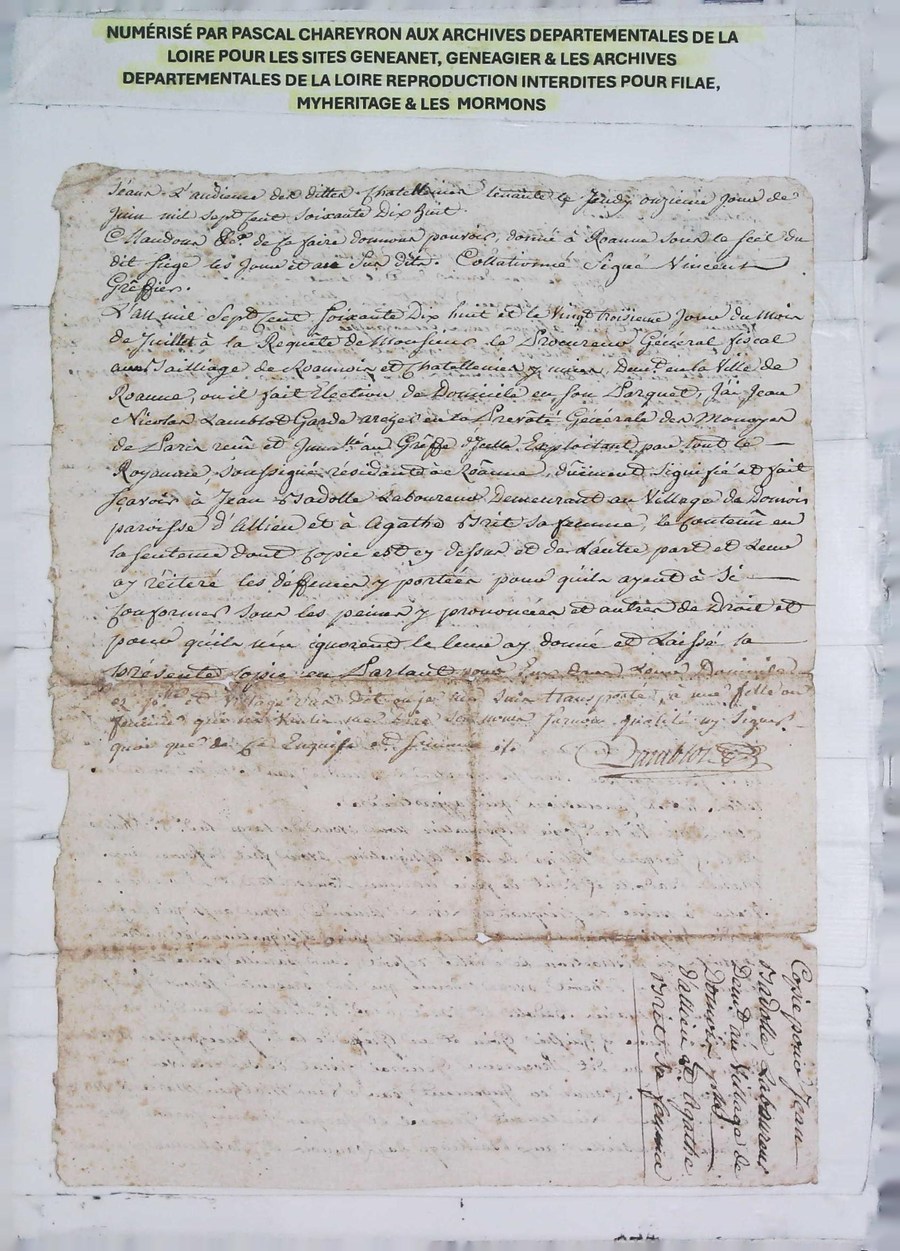 NUMÉRISÉ PAR PASCAL CHAREYRON AUX ARCHIVES DEPARTEMENTALES DE LA
LOIRE POUR LES SITES GENEANET, GENEAGIER & LES ARCHIVES
DEPARTEMENTALES DE LA LOIRE REPRODUCTION INTERDITES POUR FILAE,
MYHERITAGE & LES MORMONS
L'audience des dittes Chatellenies tenante le Jeudy onzieme Jour de
Juin mil sept Cent soixante Dix huit.
Mandons &c. de ce faire donnons pouvoir, donné à Roanne sous le scel du
dit siége les Jour et an sus dits. Collationné Signé Vincent
Gréffier.
L'an mil sept Cent soixante Dix huit et le Vingt troisieme Jour du Mois
de Juillet à la Requéte de Monsieur le Procureur Général fiscal
aux Bailliage de Roannois et Chatellenies y unies, demt. en la Ville de
Roanne, ou il fait Election de Domicile en son Parquet, J'ai Jean
Nicolas Lamblot Garde en la Prevoté Générale des Monoyes
de Paris reçu et Immlé. au Gréffe d'Icelle Exploitant par tout le
Royaume, soussigné résidant à Roanne, dûement signifié et fait
sçavoir à Jean Badolle Laboureur Demeurant au Village de Donois
paroisse d'Allieu et à Agathe Brit sa femme, le Contenû en
la sentence dont Copie est cy dessus et de L'autre part et Leur
ay réïteré les deffenses y portées pour qu'ils ayent à sé
conformer sous les peines y prononcées et autres de Droit et
pour qu'ils n'en ignorent le leur ay donné et Laissé la
présente Copie en Parlant pour Eux dans Leurs Domiciles
et Village sus dit ou je me suis transporté, à une fille ou
qui n'a Voulu me dire son nom surnom qualité ny signer
quoi que de ce Enquise et sommée
Lamblot
Copie pour Jean
Badolle Laboureur
Demt. au Village de
Donois psse.
d'allieu et Agathe
Brit sa femme